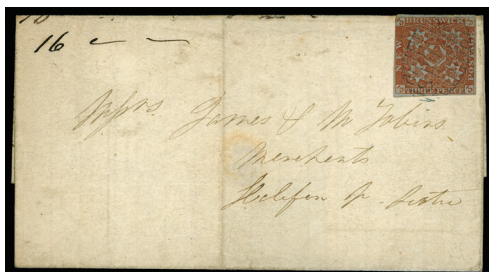 16
BRUNSWICK
NEW
POSTAGE
THREE PENCE
Messrs. James & M Tobins
Merchants
Halifax N. Scotia